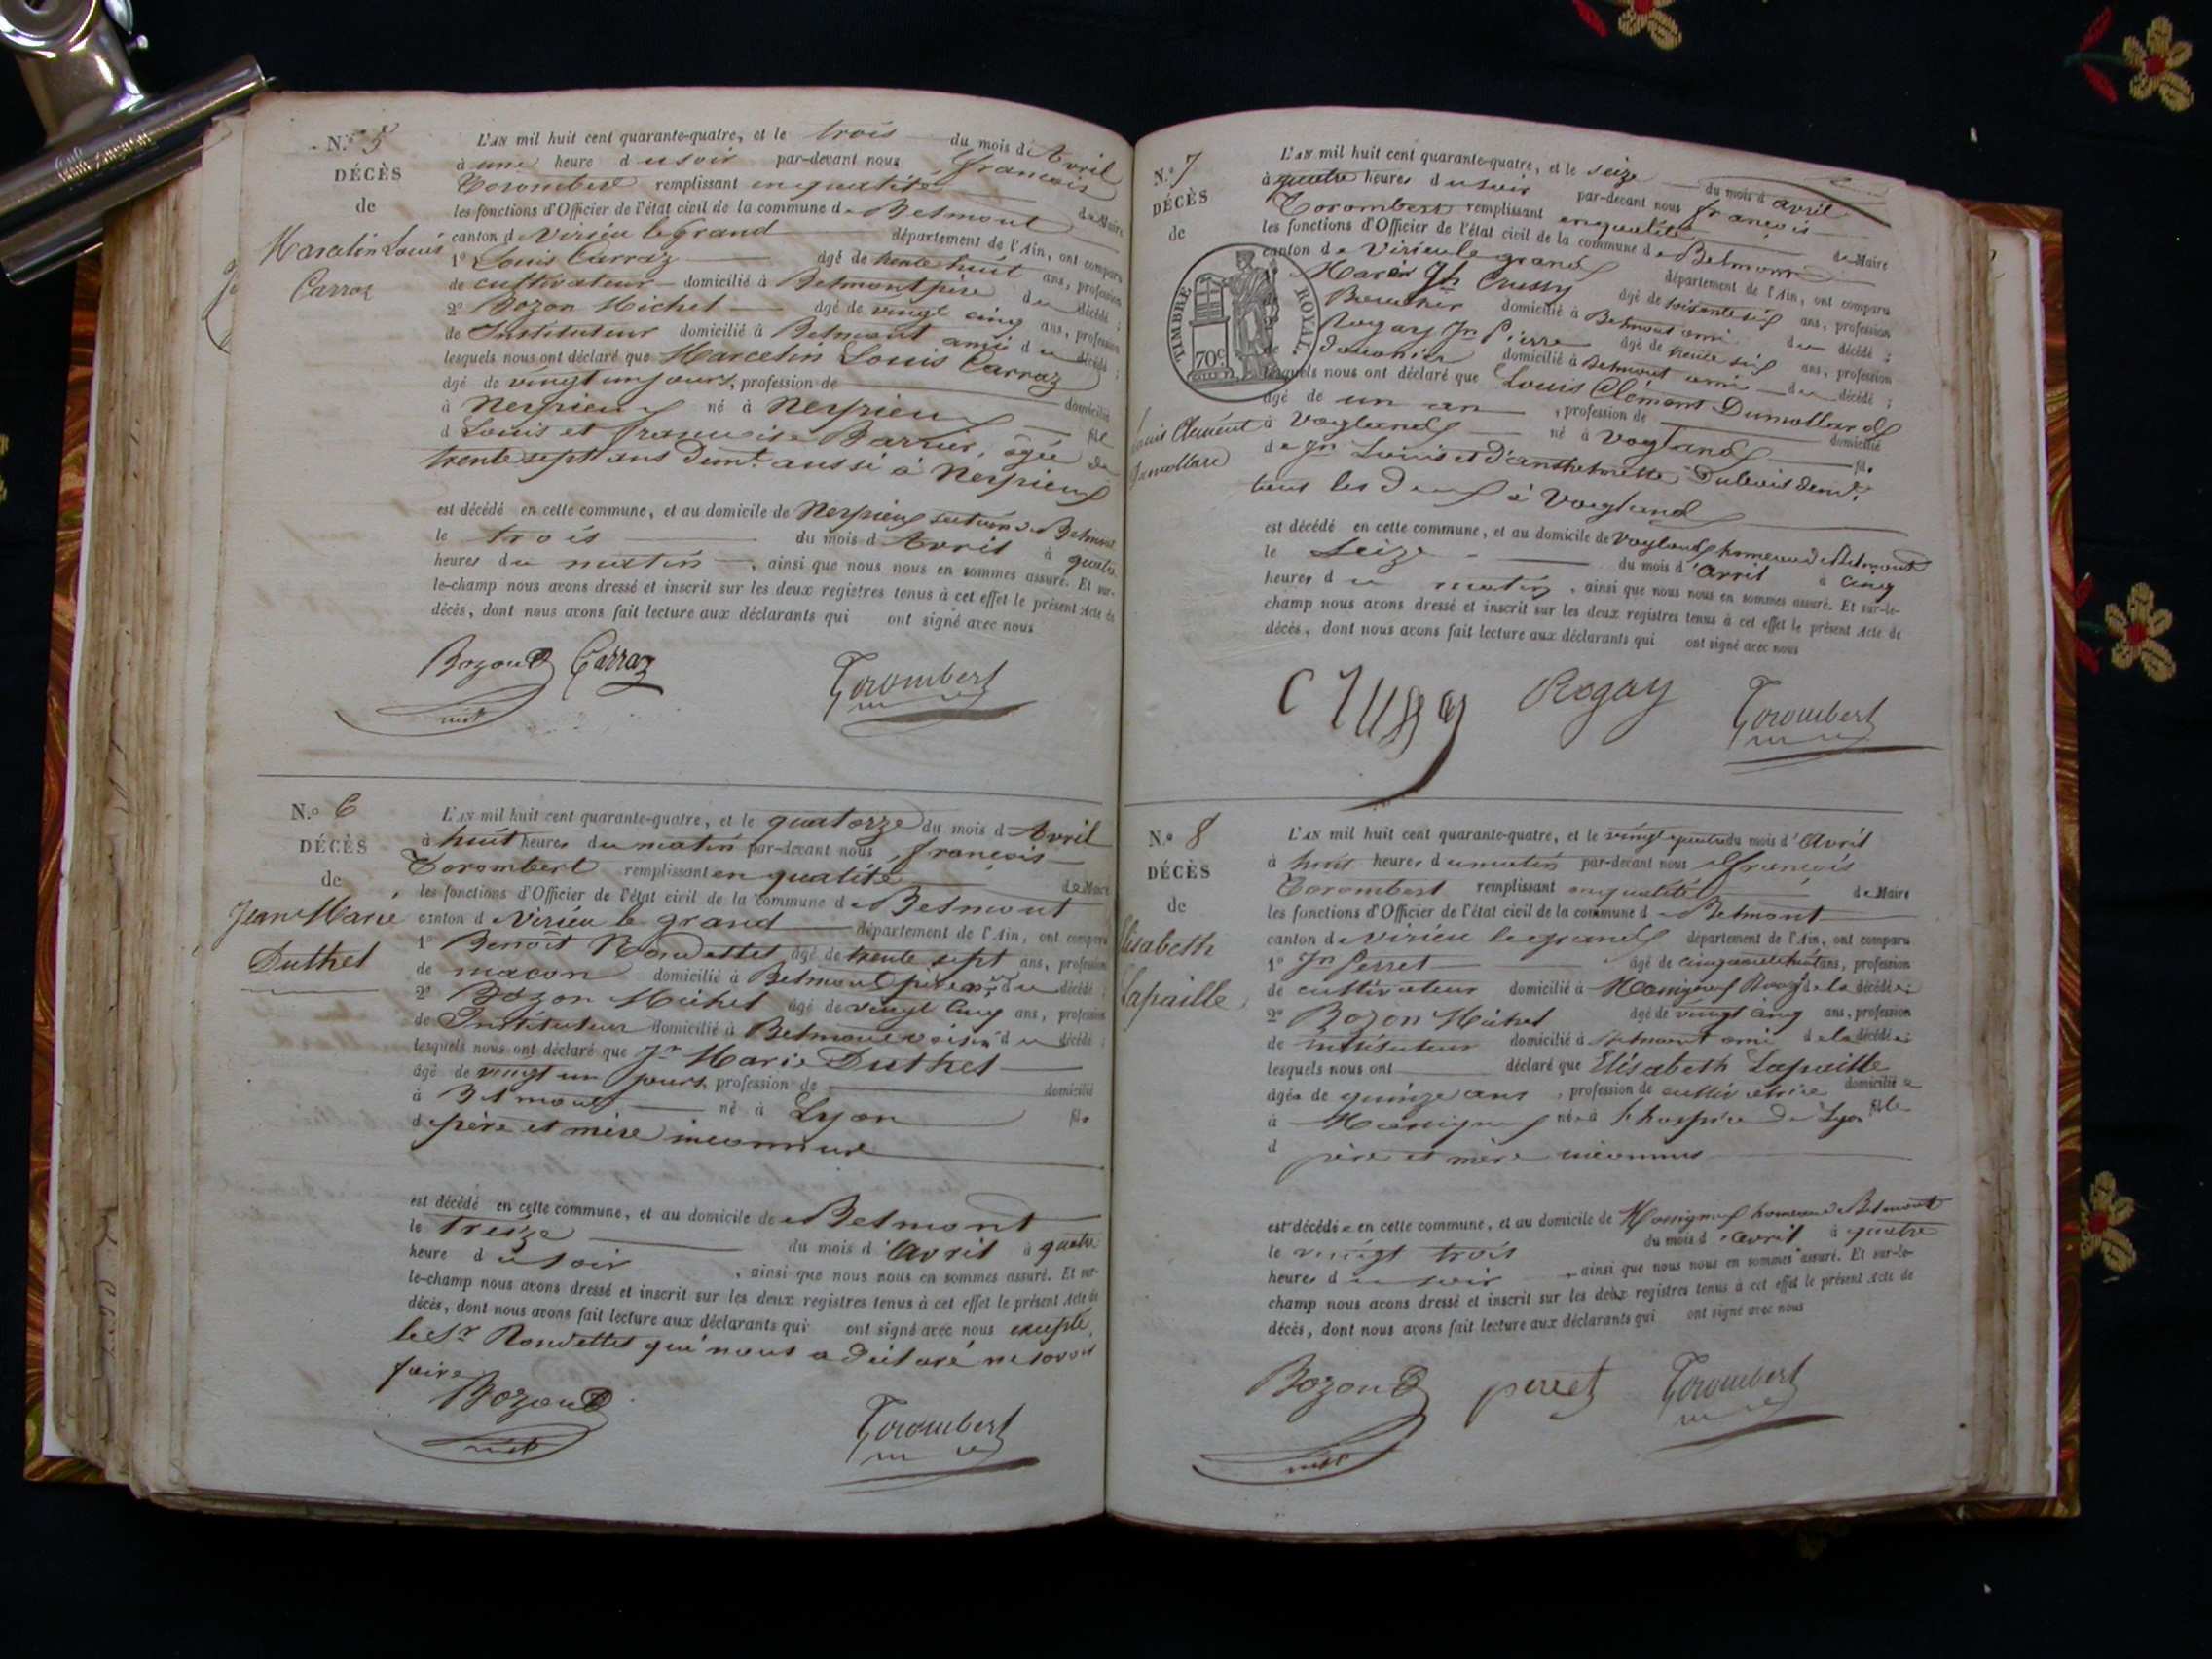 N.º 5
DÉCÈS
de
Marcelin Louis
Carraz
L'AN mil huit cent quarante-quatre, et le trois du mois d'Avril
à une heure du soir par-devant nous françois
Torombert remplissant en qualité de Maire
les fonctions d'Officier de l'état civil de la commune de Belmont
canton de Virieu le grand département de l'Ain, ont comparu
1º Louis Carraz âgé de trente huit ans, profession
de cultivateur domicilié à Belmont père du décédé ;
2º Bozon Michel âgé de vingt cinq ans, profession
de Instituteur domicilié à Belmont ami du décédé ;
lesquels nous ont déclaré que Marcelin Louis Carraz
âgé de vingt un jours, profession de domicilié
à Nerprieux né à Nerprieux fil
d Louis et françoise Barrier, âgée de
trente sept ans demt. aussi à Nerprieux
est décédé en cette commune, et au domicile de Nerprieux de Belmont
le trois du mois d'Avril à quatre
heures du matin, ainsi que nous nous en sommes assuré. Et sur-
le-champ nous avons dressé et inscrit sur les deux registres tenus à cet effet le présent Acte de
décès, dont nous avons fait lecture aux déclarants qui ont signé avec nous
Bozond Carraz Torombert
N.º 6
DÉCÈS
de
Jean Marie
Duthel
L'AN mil huit cent quarante-quatre, et le quatorze du mois d'Avril
à huit heures du matin par-devant nous françois
Torombert remplissant en qualité de Maire
les fonctions d'Officier de l'état civil de la commune de Belmont
canton de Virieu le grand département de l'Ain, ont comparu
1º Benoît Rondettet âgé de trente sept ans, profession
de maçon domicilié à Belmont père du décédé ;
2º Bozon Michel âgé de vingt cinq ans, profession
de Instituteur domicilié à Belmont voisin du décédé ;
lesquels nous ont déclaré que Jn Marie Duthel
âgé de vingt un jours, profession de domicilié
à Belmont né à Lyon fils
de père et mère inconnus
est décédé en cette commune, et au domicile de Belmont
le treize du mois d'Avril à quatre
heure du soir, ainsi que nous nous en sommes assuré. Et sur-
le-champ nous avons dressé et inscrit sur les deux registres tenus à cet effet le présent Acte de
décès, dont nous avons fait lecture aux déclarants qui ont signé avec nous excepté
le Sr Rondettet qui nous a déclaré ne savoir
faire
Bozond Torombert
N.º 7
DÉCÈS
de
TIMBRE ROYAL.
70c
Louis Clément
Dumollard
L'AN mil huit cent quarante-quatre, et le seize du mois d'avril
à quatre heures du soir par-devant nous françois
Torombert remplissant en qualité de Maire
les fonctions d'Officier de l'état civil de la commune de Belmont
canton de Virieu le grand département de l'Ain, ont comparu
Marin Jh Crussy âgé de soixante six ans, profession
domicilié à Belmont ami du décédé ;
Rogay Jn Pierre âgé de trente six ans, profession
de domicilié à Belmont ami du décédé ;
lesquels nous ont déclaré que Louis Clément Dumollard
âgé de un an, profession de domicilié
à Vogland né à Vogland fils
de Jn Louis et d'anthelmette Dubois demt.
tous les deux à Vogland
est décédé en cette commune, et au domicile de Vogland hameau de Belmont
le Seize du mois d'avril à cinq
heures du matin, ainsi que nous nous en sommes assuré. Et sur-le-
champ nous avons dressé et inscrit sur les deux registres tenus à cet effet le présent Acte de
décès, dont nous avons fait lecture aux déclarants qui ont signé avec nous
Crussy Rogay Torombert
N.º 8
DÉCÈS
de
Elisabeth
Lapaille
L'AN mil huit cent quarante-quatre, et le vingt quatre du mois d'Avril
à huit heures du matin par-devant nous françois
Torombert remplissant en qualité de Maire
les fonctions d'Officier de l'état civil de la commune de Belmont
canton de Virieu le grand département de l'Ain, ont comparu
1º Jn Perret âgé de cinquante huit ans, profession
de cultivateur domicilié à Massignieux de la décédée ;
2º Bozon Michel âgé de vingt cinq ans, profession
de instituteur domicilié à Belmont ami de la décédée ;
lesquels nous ont déclaré que Elisabeth Lapaille
âgée de quinze ans, profession de cultivatrice domiciliée
à Massignieux née à l'hospice de Lyon fille
d père et mère inconnus
est décédée en cette commune, et au domicile de Massignieux hameau de Belmont
le vingt trois du mois d'avril à quatre
heures du soir, ainsi que nous nous en sommes assuré. Et sur-le-
champ nous avons dressé et inscrit sur les deux registres tenus à cet effet le présent Acte de
décès, dont nous avons fait lecture aux déclarants qui ont signé avec nous
Bozond perret Torombert